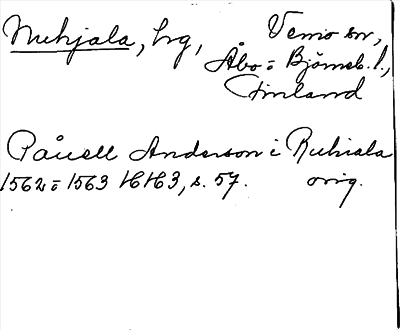 Nuhjala, hg, Vemo sn,
Åbo = Björneb. l.,
Finland
Påuell Anderson i Ruhiala
1562 = 1563 HH3, s. 57. orig.